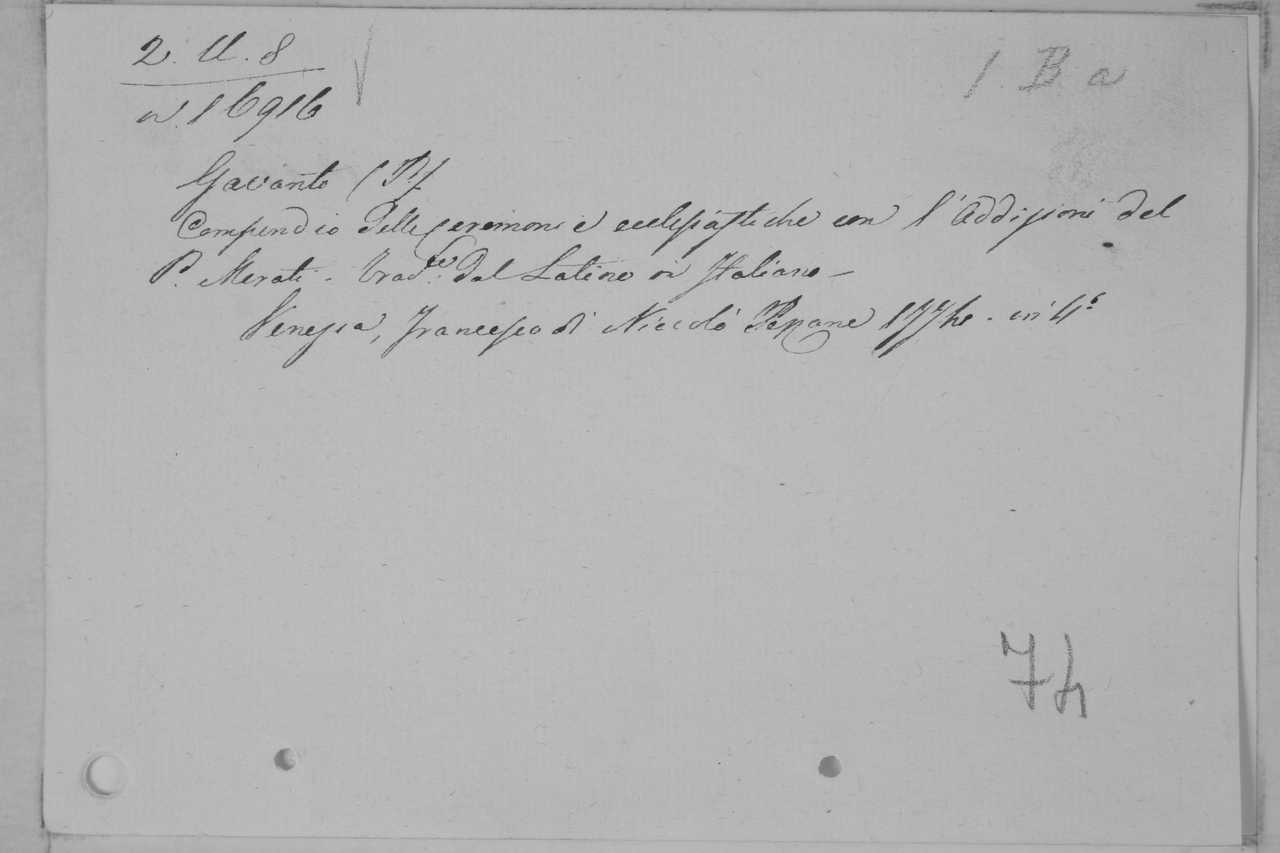 2. U. 8
1 B a
n. 16916
Gavanto (P)
Compendio delle ceremonie ecclesiastiche con l'Addizioni del
P. Merati - trad.to dal Latino in Italiano -
Venezia, Francesco di Niccolò Pezzane 1774. in 4°
74